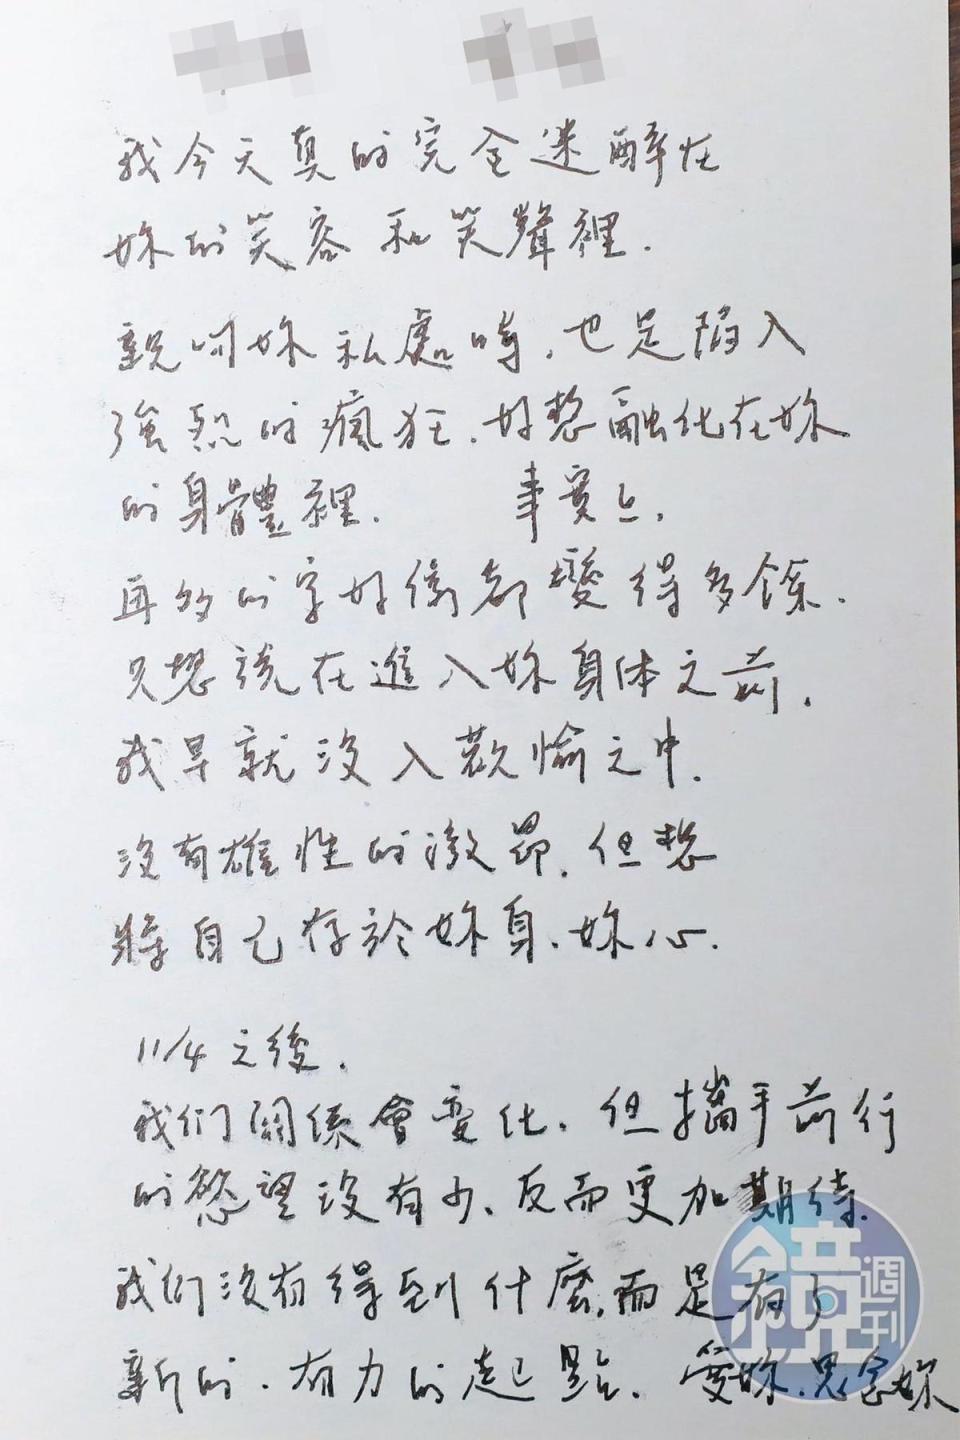 我今天真的完全迷醉在
妳的笑容和笑聲裡.
親吻妳私處時,也是陷入
強烈的瘋狂.好想融化在妳
的身體裡. 事實上,
再多的字好像都變得多餘.
只想說在進入妳身体之前,
我早就沒入歡愉之中.
沒有雄性的激昂,但想
將自己存於妳身、妳心.
11/4之後,
我们關係會變化,但攜手前行
的慾望沒有少、反而更加期待.
我们沒有得到什麼,而是有了
新的、有力的起點. 愛妳、思念妳
鏡週刊